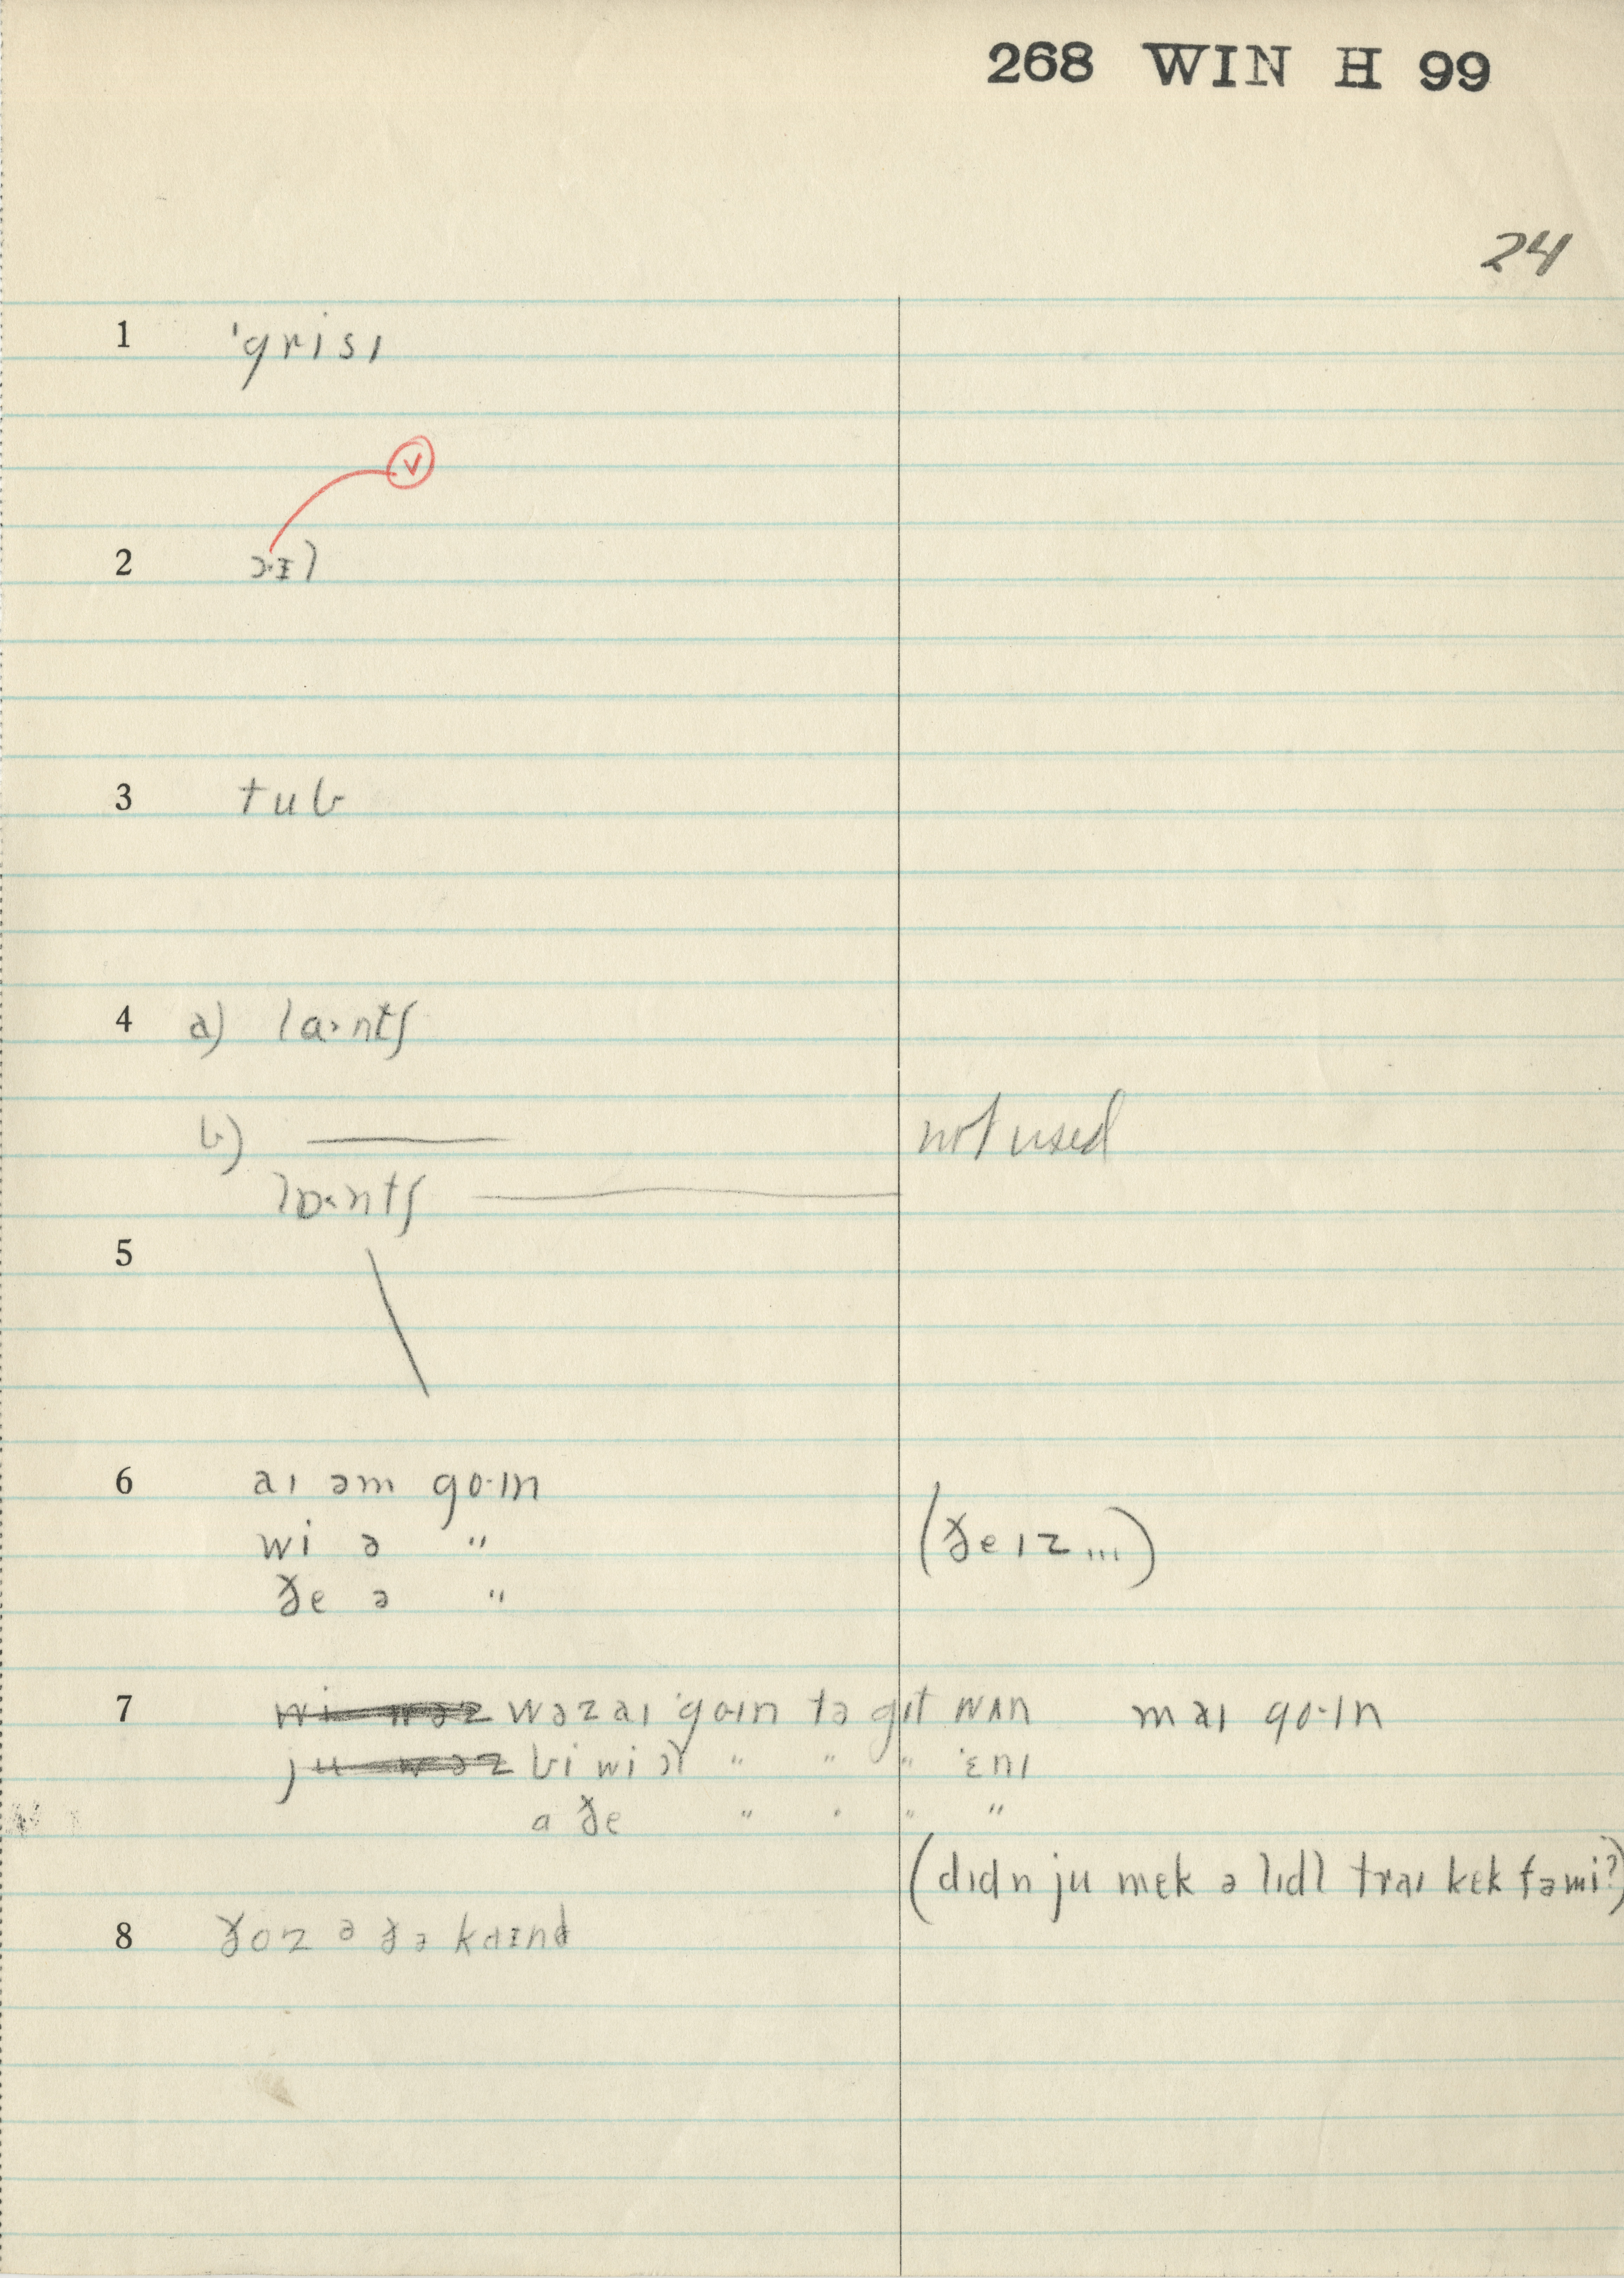 268 WIN H 99
24
1 ˈgrisɪ
v
2 ɔ·ɪl
3 tub
4 a) la·ntʃ
b) ——— not used
lɒ·ntʃ
5
6 aɪ əm go·ɪn
wi ə " (ðe ɪz ...)
ðe ə "
7 wi wəz wəz aɪ ˈgoɪn tə gɪt wʌn maɪ go·ɪn
ju wəz bi wi " " " ˈɛnɪ
a ðe " " " "
(dɪdn ju mek ə lɪdl traɪ kek fə mi?)
8 ðoz ə ðə kaɪnd